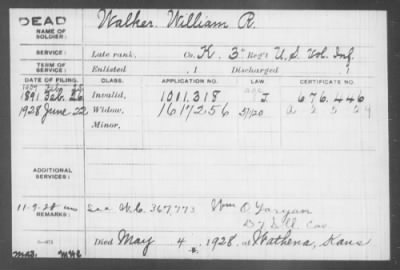 DEAD
NAME OF SOLDIER: Walker, William R.
SERVICE: Late rank, Co. K. 3" Reg't U.S. Vol. Inf.
TERM OF SERVICE: Enlisted , 1 Discharged , 1
DATE OF FILING. CLASS. APPLICATION NO. LAW. CERTIFICATE NO.
1891 Feb. 26 Invalid, 1011.318 J. 676.446
1928 June 22 Widow, 1617256 5/1/20
Minor,
ADDITIONAL SERVICES:
REMARKS: 11-9-28 See W.C. 367,773 Wm O. Taryan
Cav
Died May 4, 1928, at Wathena, Kans